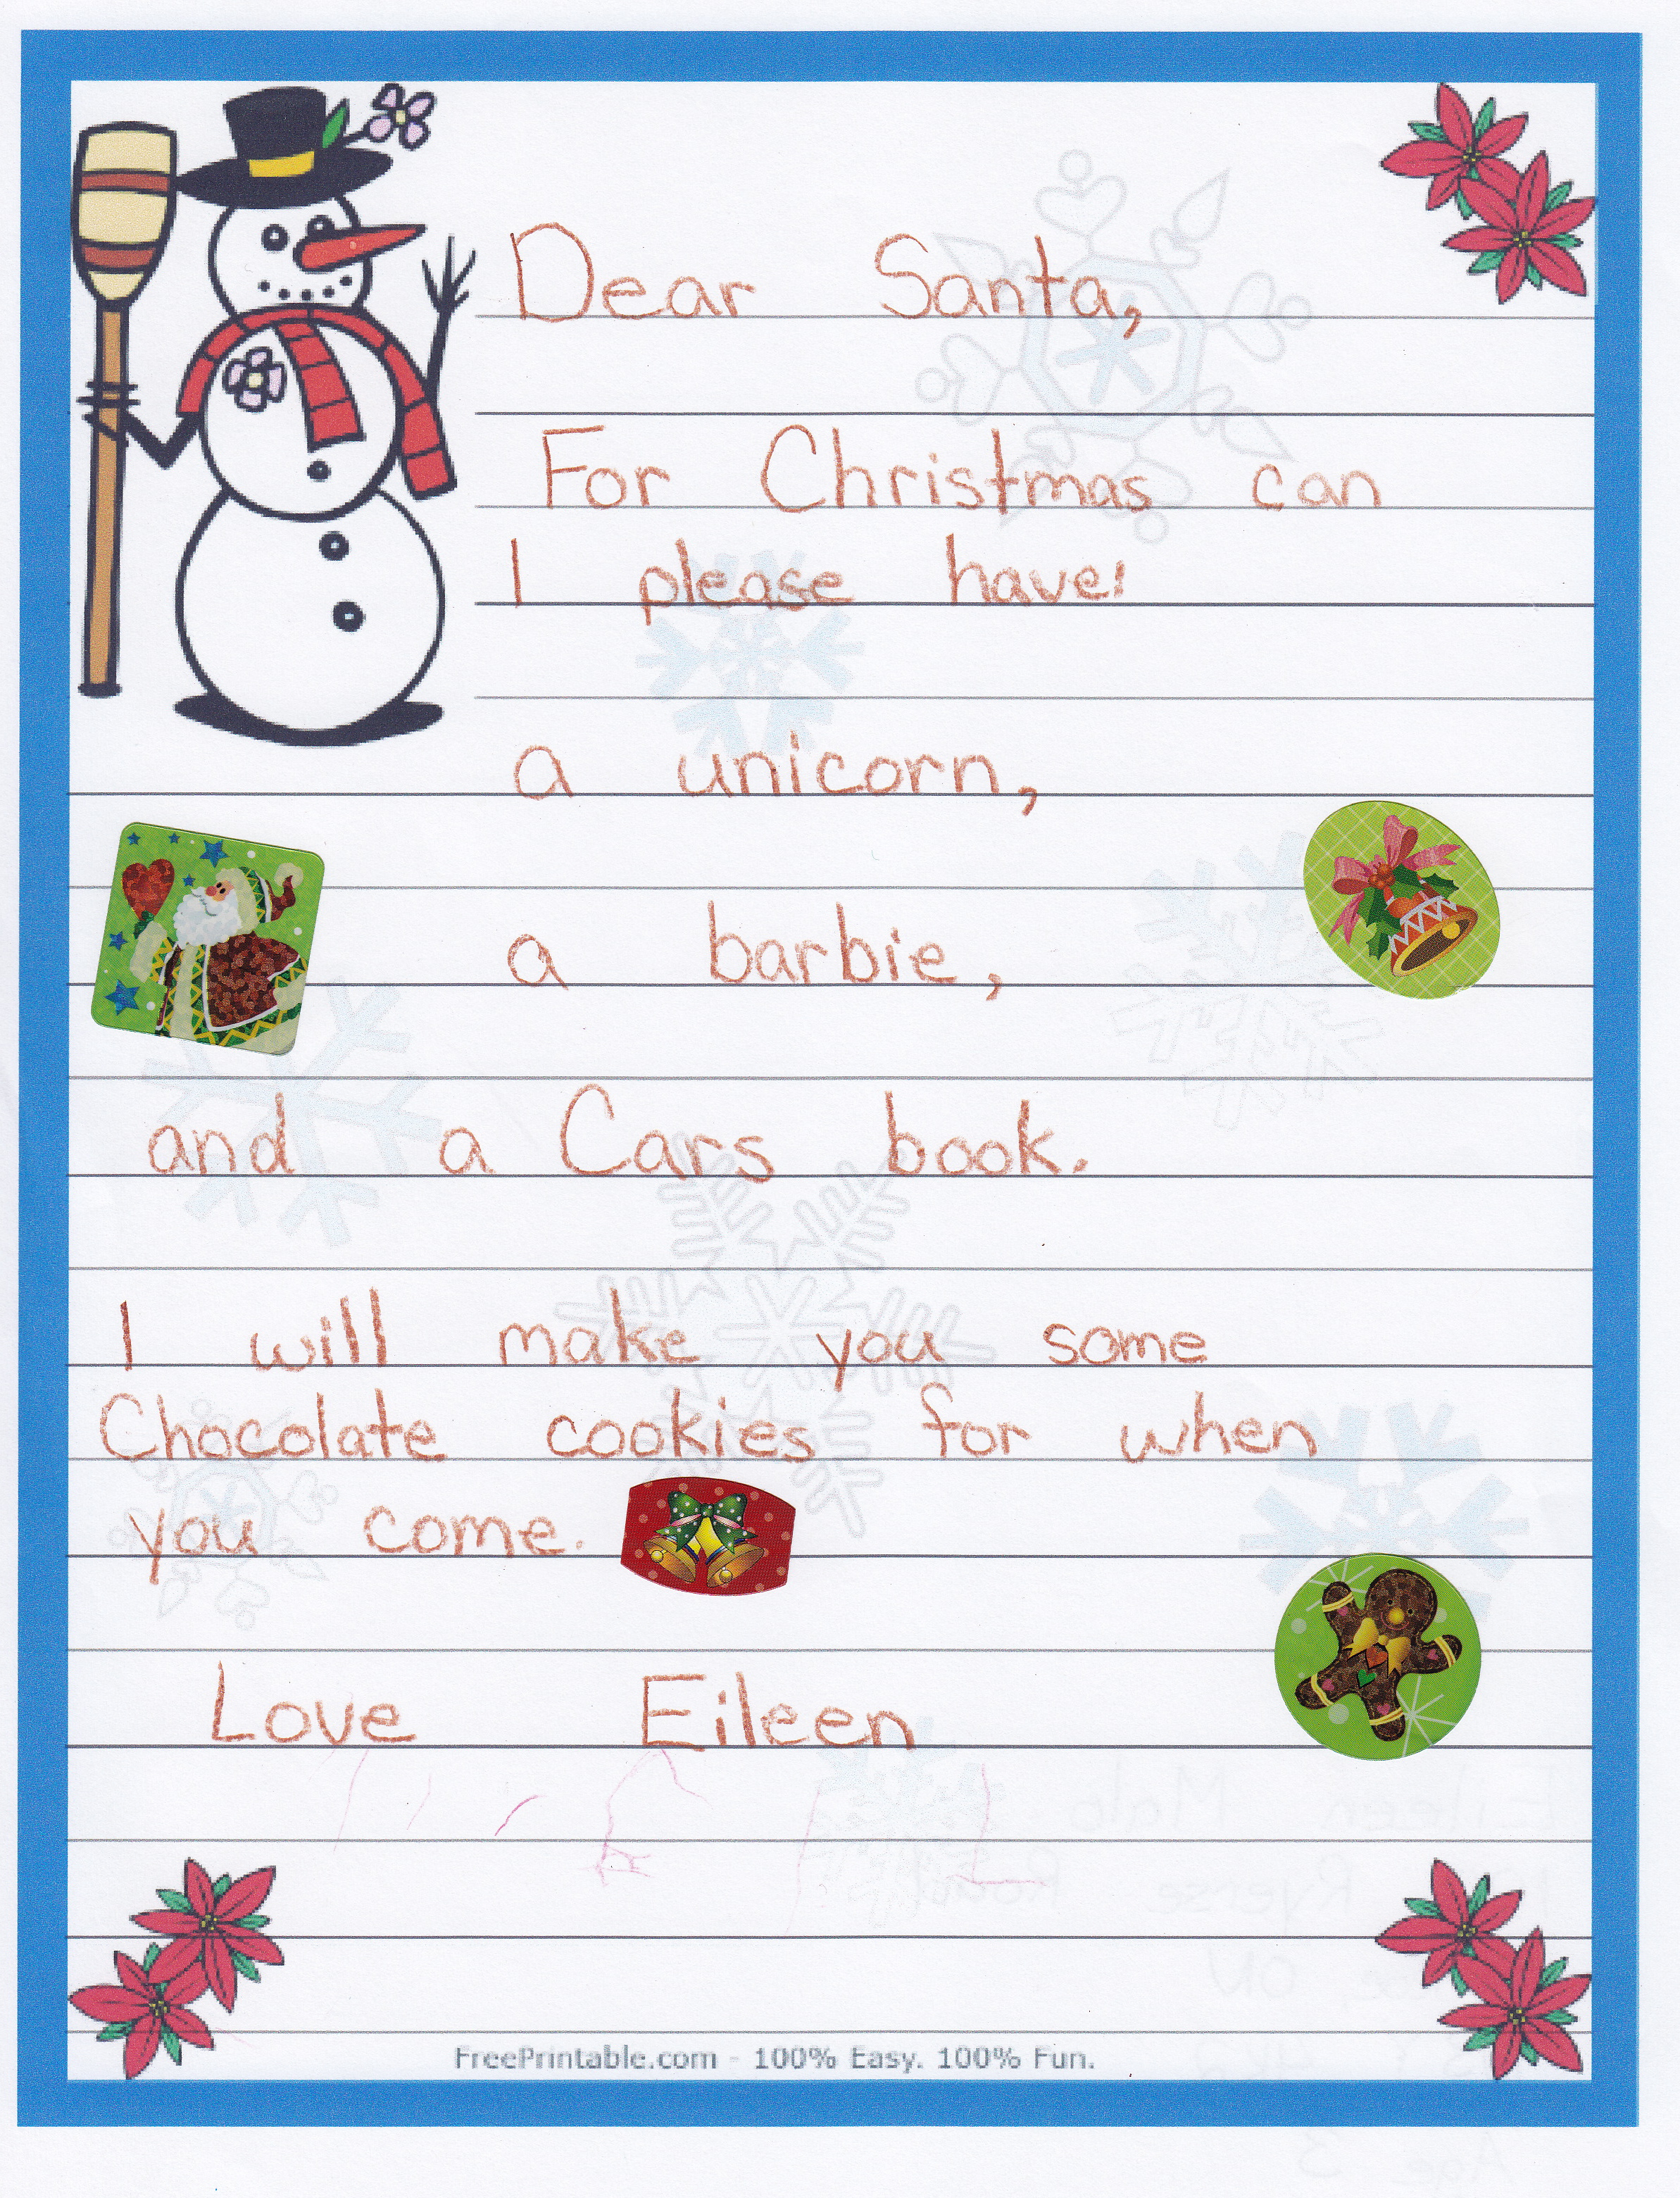 Dear Santa,
For Christmas can
I please have:
a unicorn,
a barbie,
and a Cars book.
I will make you some
Chocolate cookies for when
you come.
Love Eileen
FreePrintable.com - 100% Easy. 100% Fun.